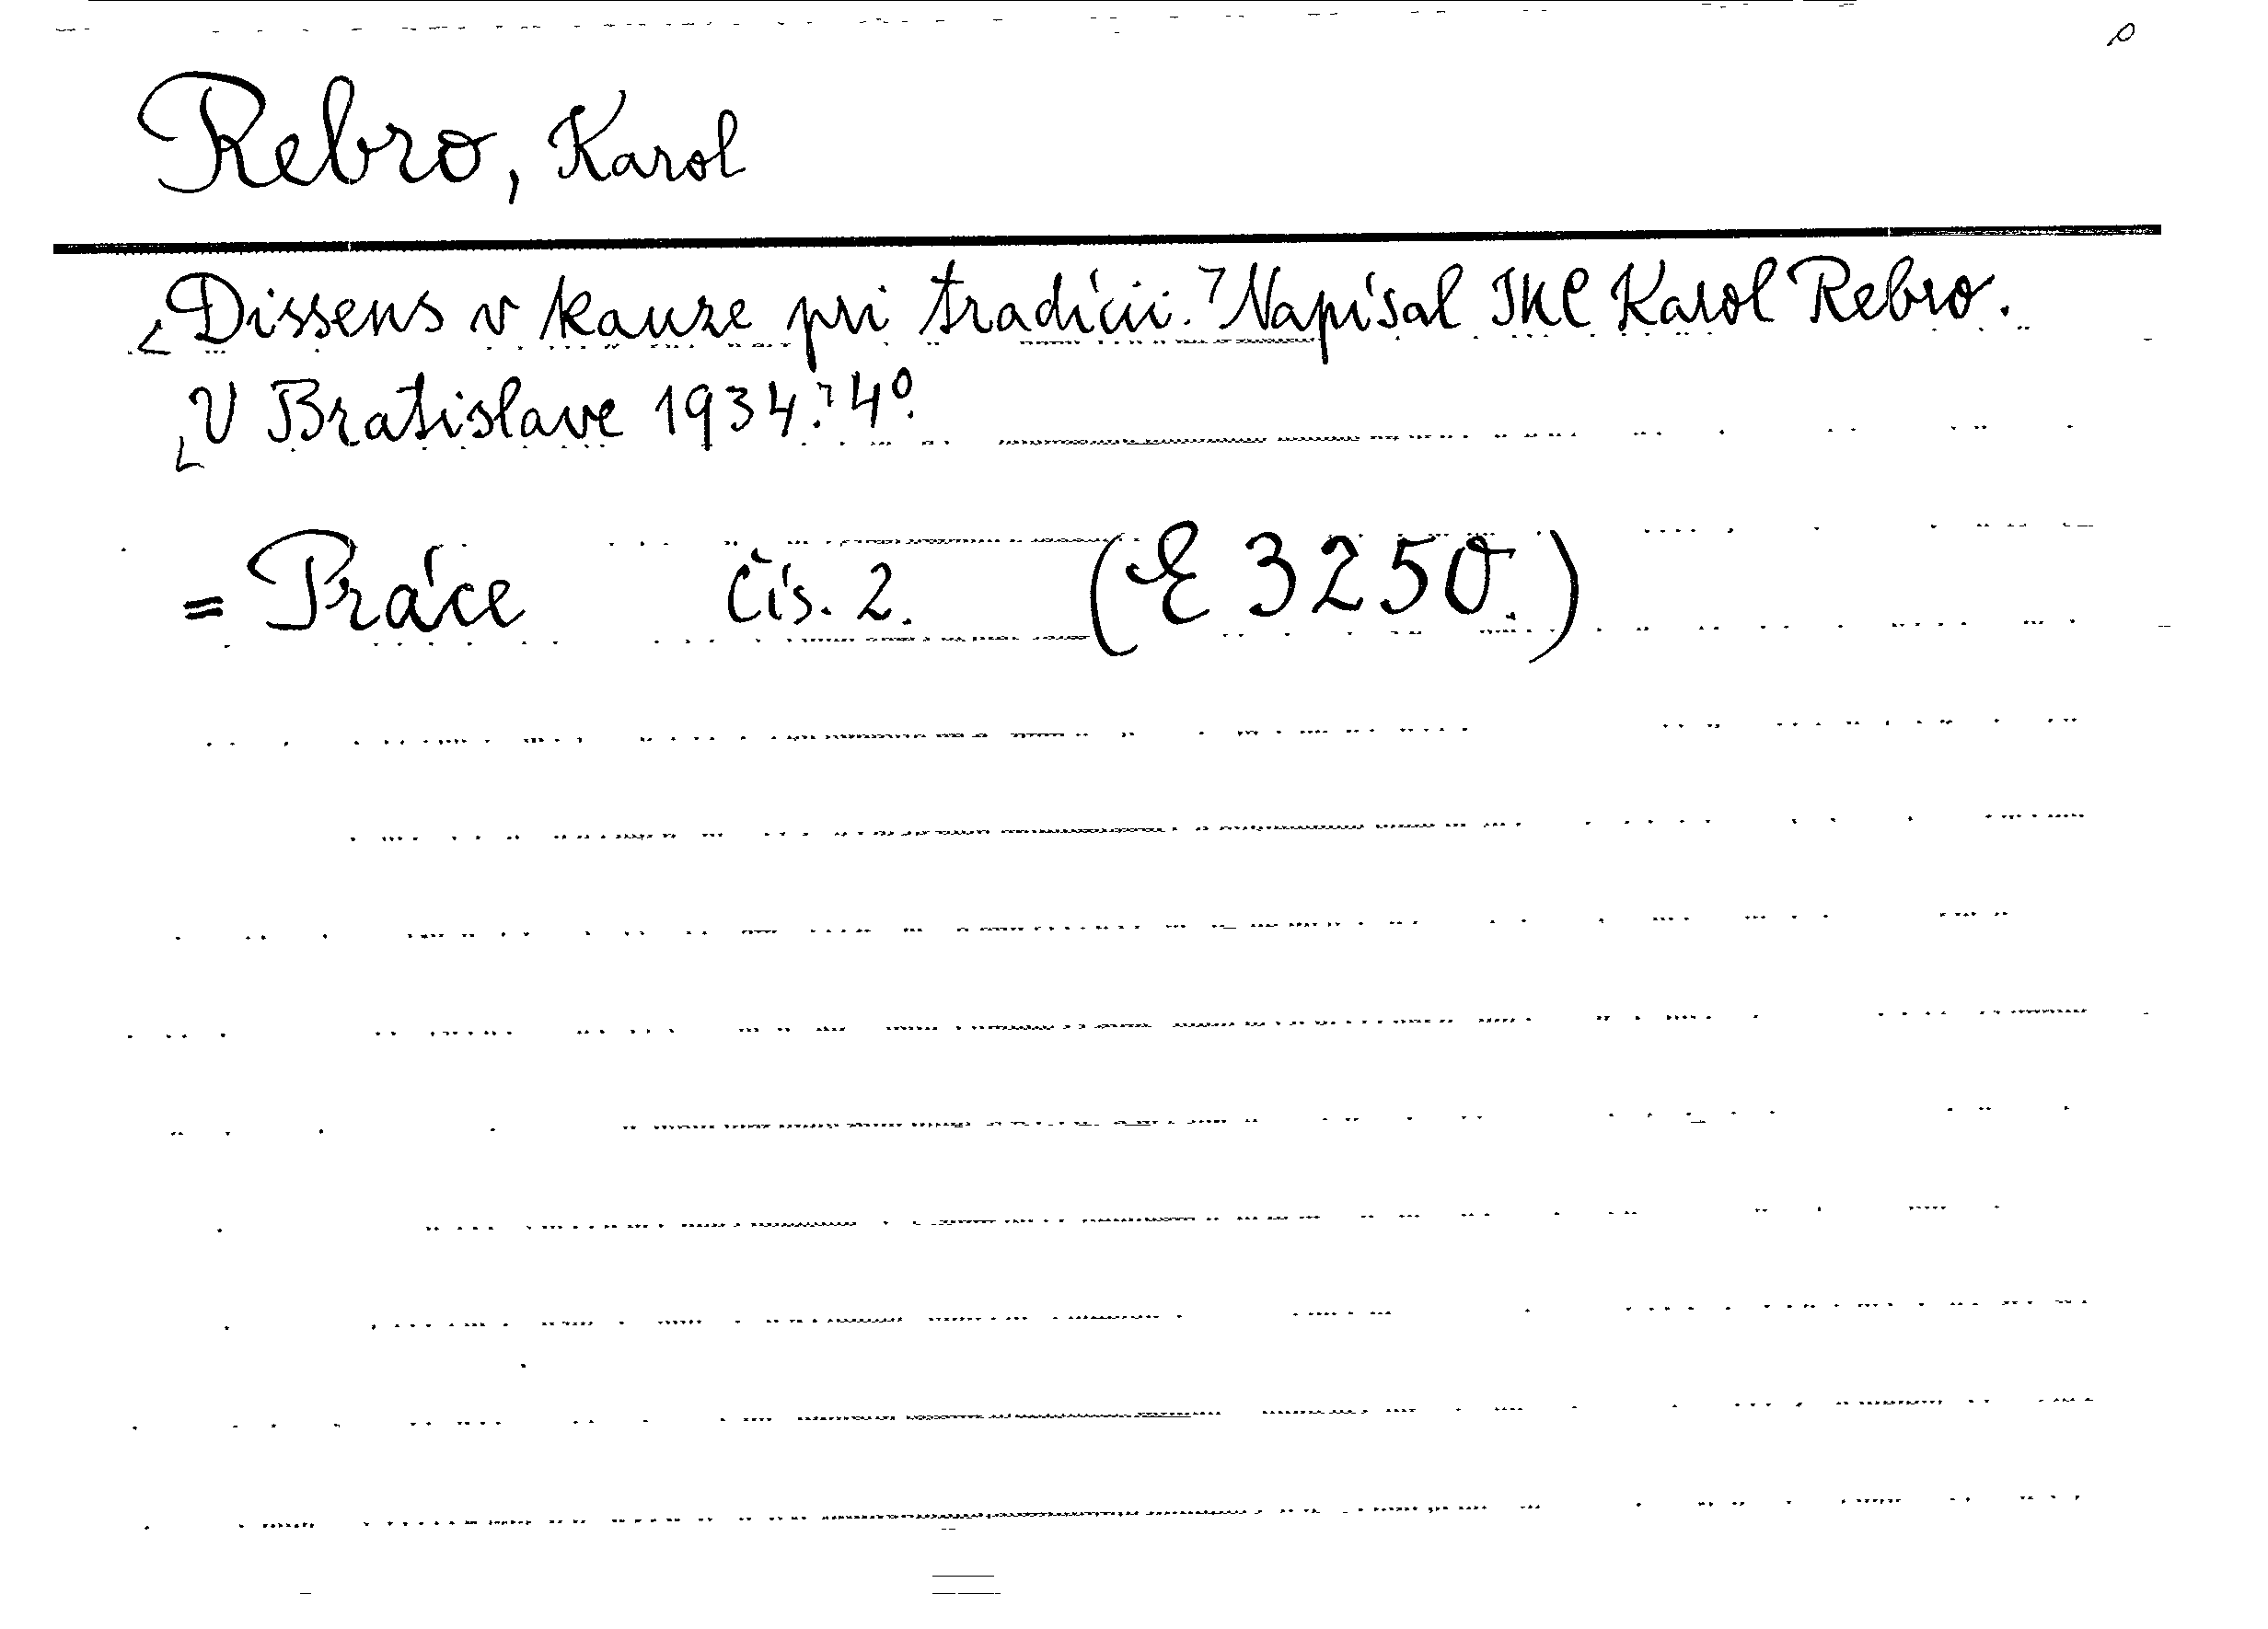 Rebro, Karol
Dissens v kauze pri tradícii. Napísal JUC Karol Rebro.
V Bratislave 1934. 4°.
= Práce čís. 2. (E 3250.)